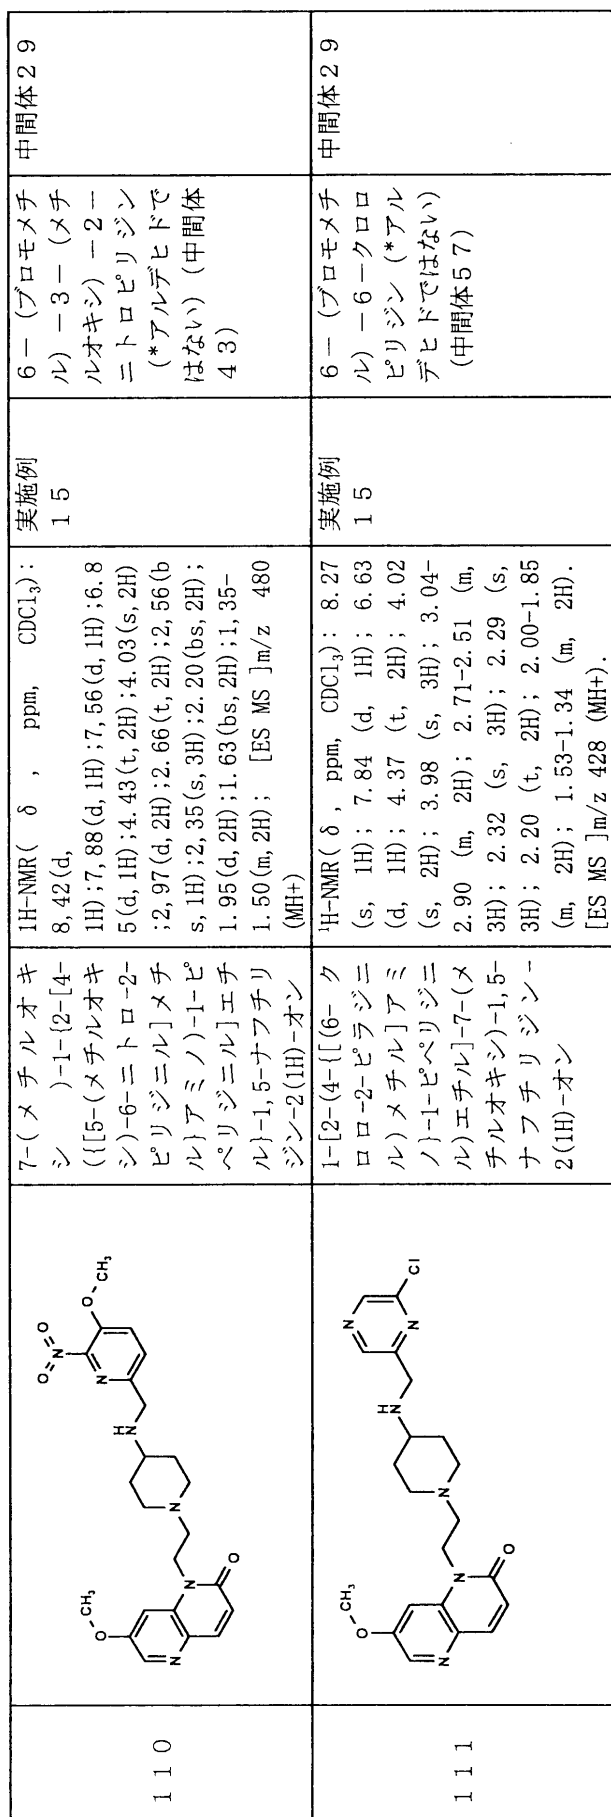 110
7-(メチルオキ
シ)-1-{2-[4-
({[5-(メチルオキ
シ)-6-ニトロ-2-
ピリジニル]メチ
ル}アミノ)-1-ピ
ペリジニル]エチ
ル}-1,5-ナフチリ
ジン-2(1H)-オン
1H-NMR( δ , ppm, CDCl₃):
8,42(d,
1H);7,88(d,1H);7,56(d,1H);6.8
5(d,1H);4.43(t,2H);4.03(s,2H)
;2,97(d,2H);2.66(t,2H);2,56(b
s,1H);2,35(s,3H);2.20(bs,2H);
1.95(d,2H);1.63(bs,2H);1,35-
1.50(m,2H); [ES MS ]m/z 480
(MH+)
実施例
15
6-(ブロモメチ
ル)-3-(メチ
ルオキシ)-2-
ニトロピリジン
(*アルデヒドで
はない)(中間体
43)
中間体29
N
O
CH₃
N
O
N
HN
N
N
O
O
O
CH₃
111
1-[2-(4-{[(6-ク
ロロ-2-ピラジニ
ル)メチル]アミ
ノ}-1-ピペリジニ
ル)エチル]-7-(メ
チルオキシ)-1,5-
ナフチリジン-
2(1H)-オン
¹H-NMR( δ , ppm, CDCl₃): 8.27
(s, 1H); 7.84 (d, 1H); 6.63
(d, 1H); 4.37 (t, 2H); 4.02
(s, 2H); 3.98 (s, 3H); 3.04-
2.90 (m, 2H); 2.71-2.51 (m,
3H); 2.32 (s, 3H); 2.29 (s,
3H); 2.20 (t, 2H); 2.00-1.85
(m, 2H); 1.53-1.34 (m, 2H).
[ES MS ]m/z 428 (MH+).
実施例
15
6-(ブロモメチ
ル)-6-クロロ
ピリジン(*アル
デヒドではない)
(中間体57)
中間体29
N
O
CH₃
N
O
N
HN
N
N
Cl